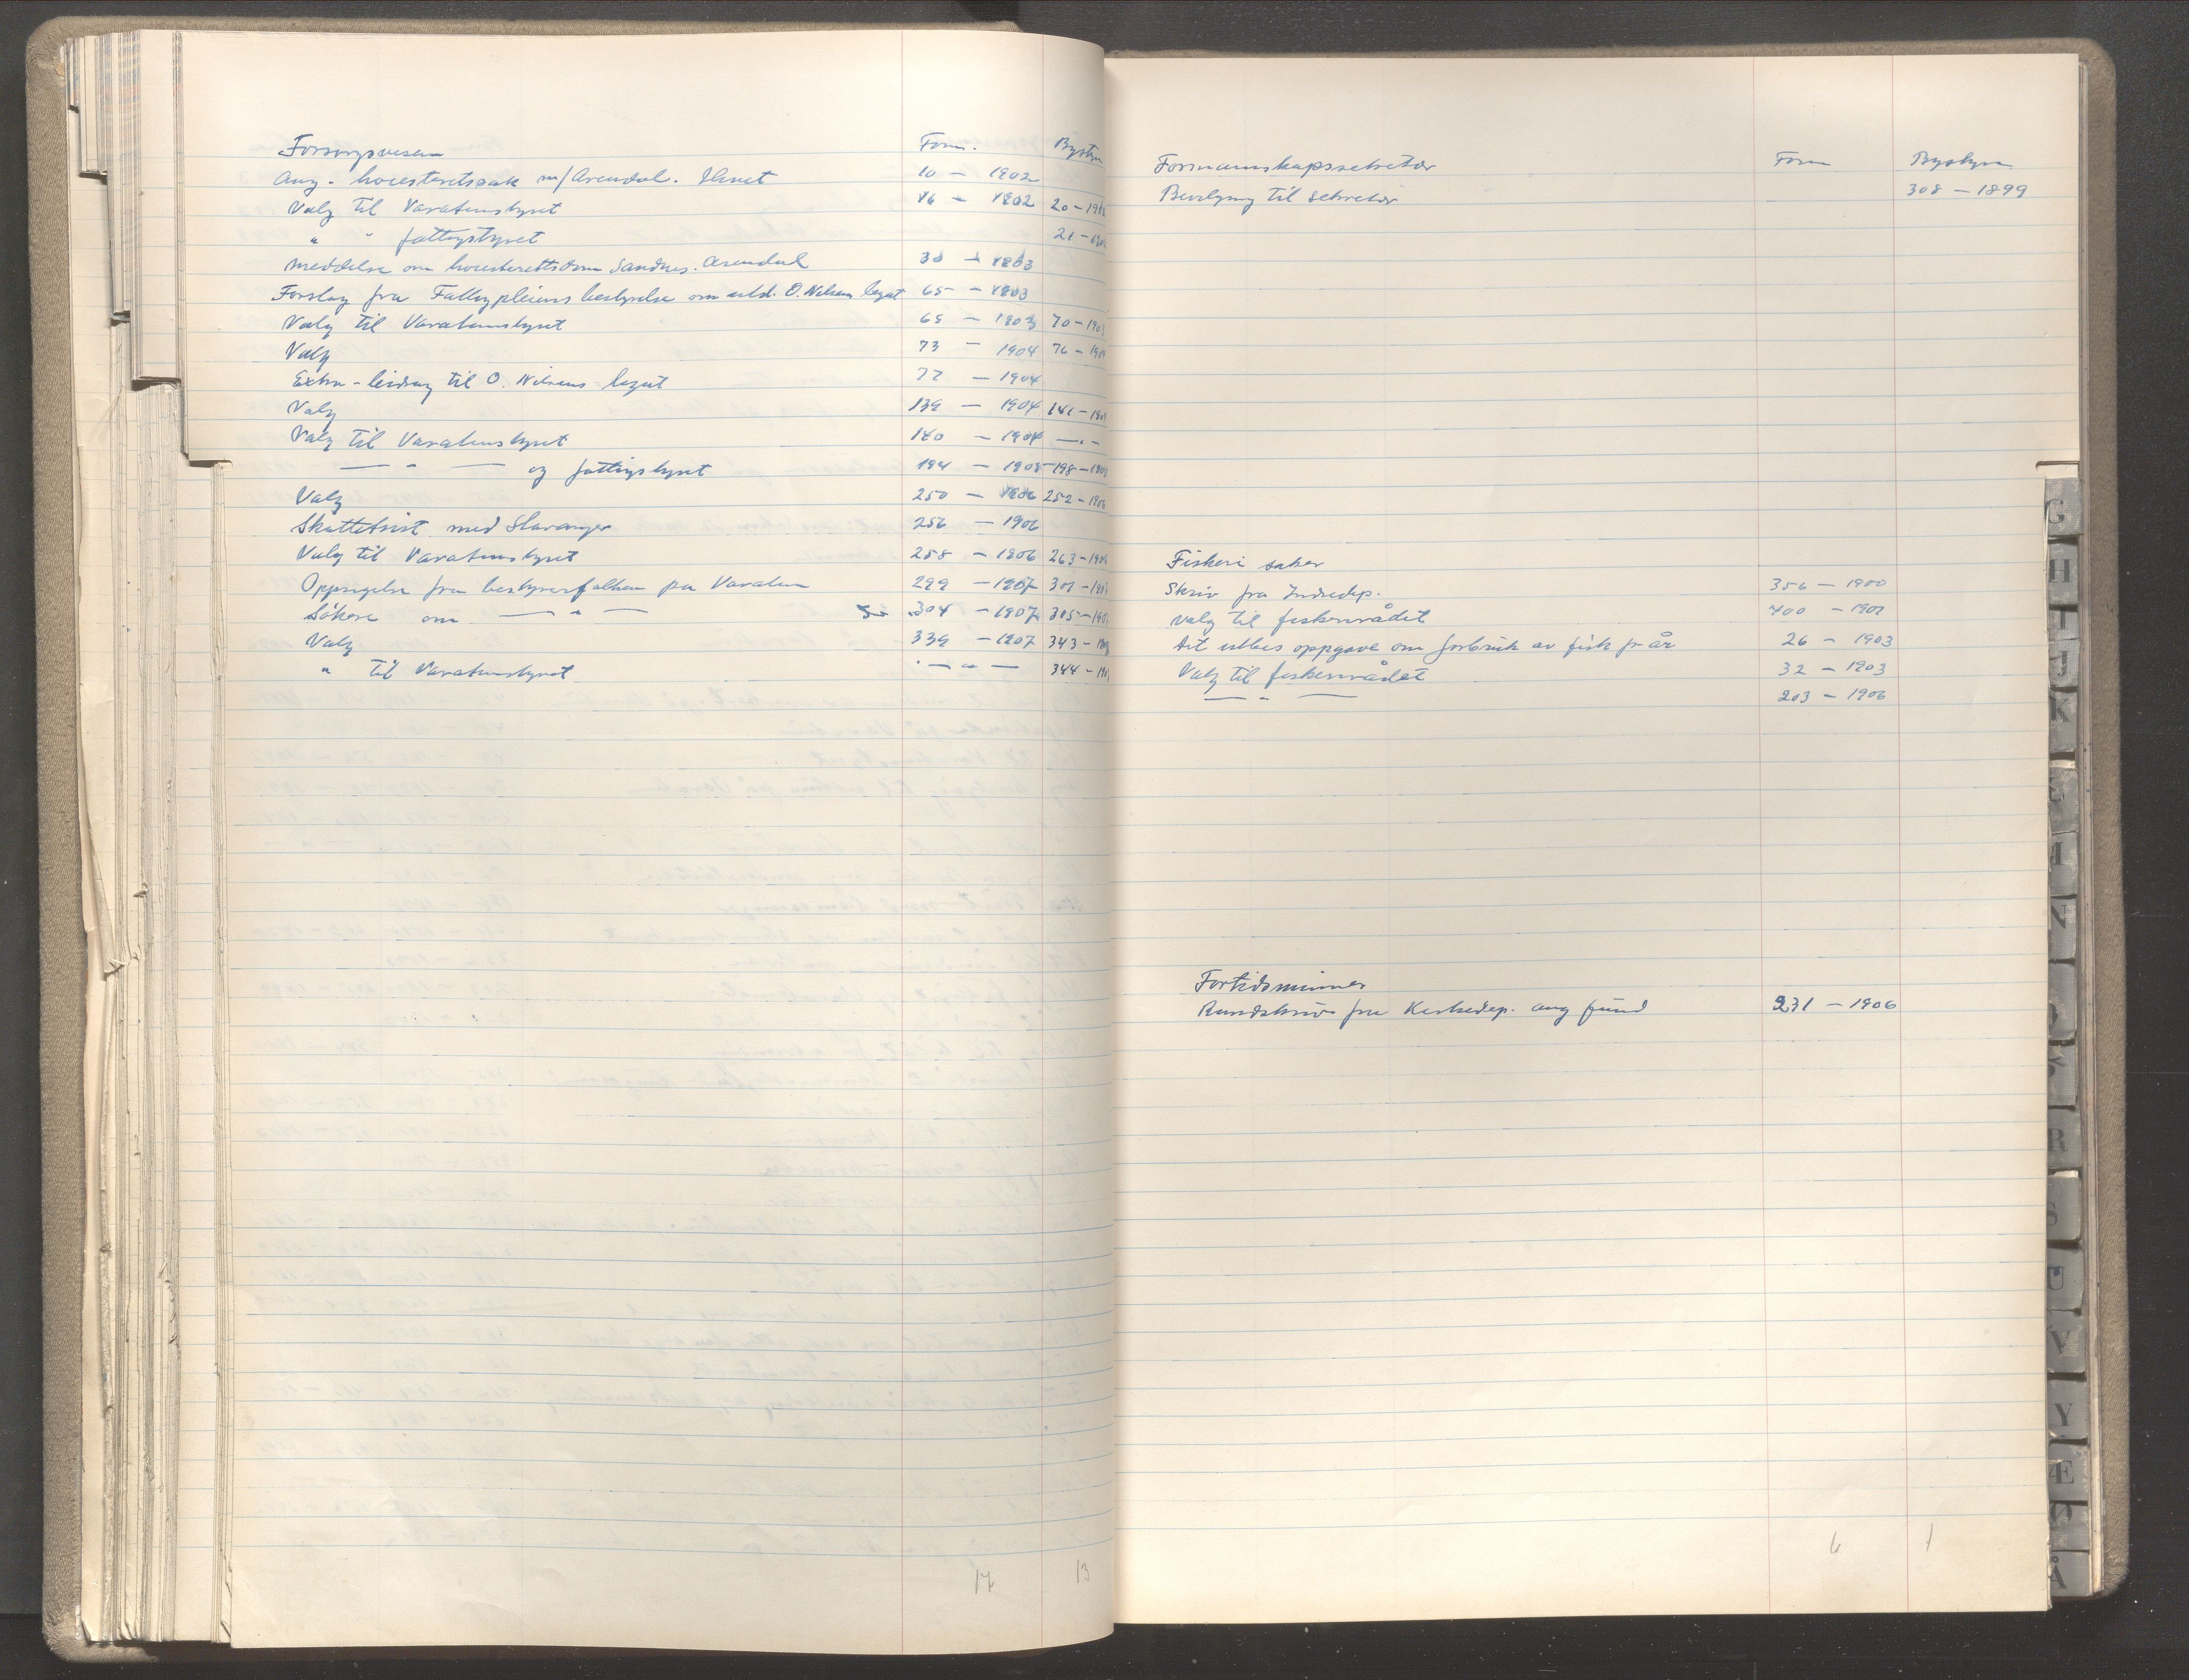 Forsorgsvesen Form. Bystyre
Ang. høiesteretssak m/Arendal. 10 - 1902
Valg til Varatunstyret 16 - 1902 20-1902
" " fattigstyret 21-1902
Meddelse om høiesterettsdom Sandnes. Arendal 30 - 1903
Forslag fra Fattigpleiens bestyrelse om utd. O. Nilsens legat 65 - 1903
Valg til Varatunstyret 69 - 1903 70-1903
Valg 73 - 1904 76-1904
Extra-bidrag til O. Nilsens legat 77 - 1904
Valg 139 - 1904 141-1904
Valg til Varatunstyret 140 - 1904 —"—
— " — og fattigstyret 194 - 1905 198-1905
Valg 250 - 1906 252-1906
Skattetvist med Stavanger 256 - 1906
Valg til Varatunstyret 258 - 1906 263-1906
Oppsigelse fra bestyrerfolkene på Varatun 299 - 1907 301-1907
Søkere om — " — 304 - 1907 305-1907
Valg 339 - 1907 343-1907
" til Varatunstyret — " — 344-1907
17 13
Formannskapssekretær Form Bystyre
Bevilgning til sekretær 308 - 1899
Fiskeri saker
Skriv fra Indredep. 356 - 1900
Valg til fiskerirådet 400 - 1901
Det utbes oppgave om forbruk av fisk pr år 26 - 1903
Valg til fiskerirådet 32 - 1903
— " — 203 - 1906
Fortidsminner
Rundskriv fra Kirkedep. ang funn 231 - 1906
6 1
G
H
I
J
K
N
R
S
U
V
Y
Æ
Å